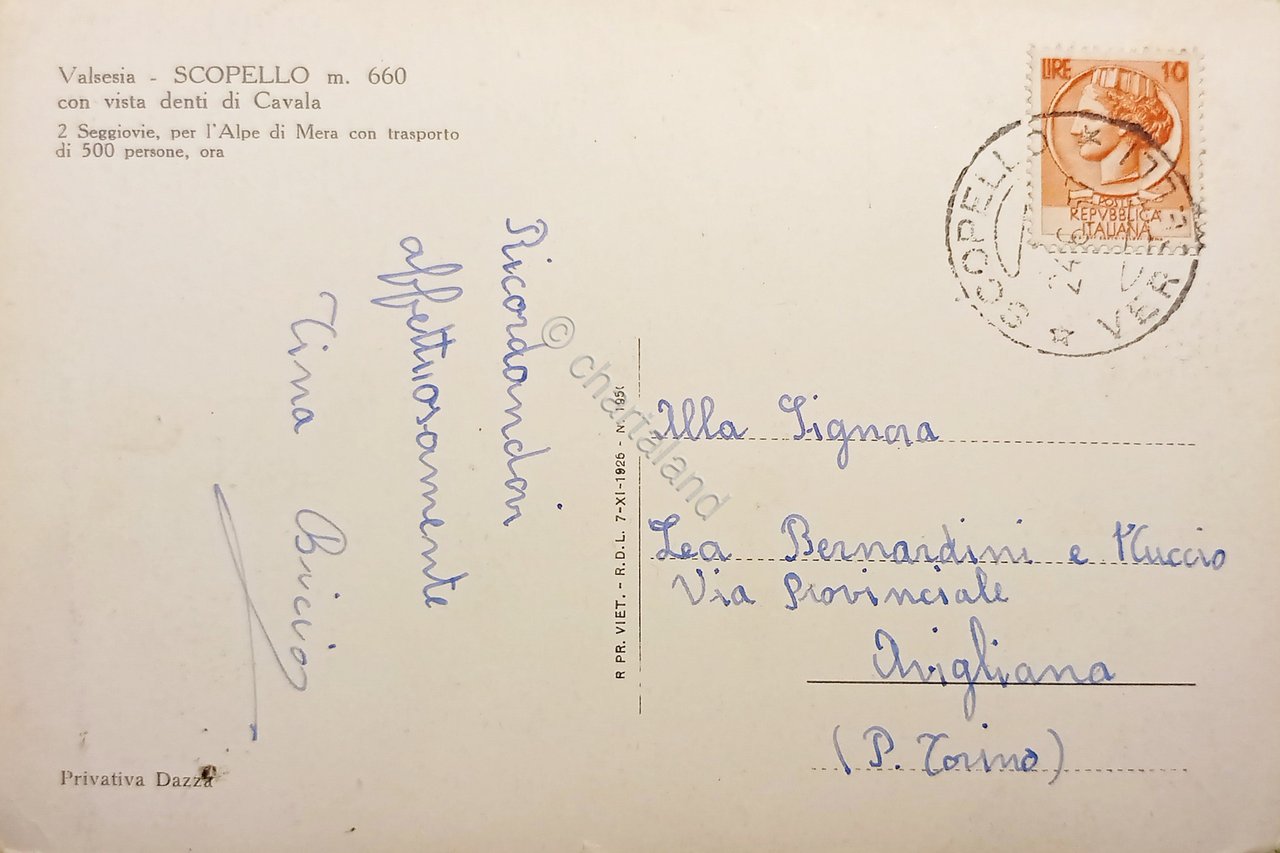 Valsesia - SCOPELLO m. 660
con vista denti di Cavala
2 Seggiovie, per l'Alpe di Mera con trasporto
di 500 persone, ora
LIRE 10
POSTE
REPVBBLICA
ITALIANA
SCOPELLO
VER
24
Ricordandovi
affettuosamente
Tina
© chartaland
R PR. VIET. - R.D.L. 7-XI-1926 - N. 195
Alla Signora
Lea Bernardini e Nuccio
Via Provinciale
Avigliana
(P. Torino)
Privativa Dazza